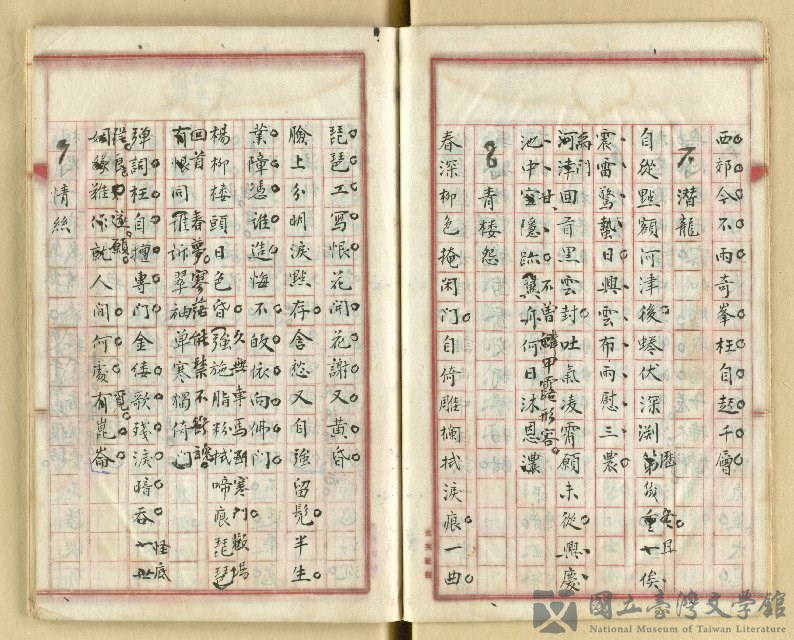 西郊今不雨奇峯枉自起千層
7. 潛龍
自從點額河津後蜷伏深淵歷冬且俟
震雷驚蟄日興雲布雨慰三農
禹門
河津回首黑雲封吐氣凌霄願未從興慶
池中甘隱跡不曾鱗甲露形容
何日沐恩濃
8 青楼怨
春深柳色掩閑門自倚雕欄拭淚痕一曲
琵琶工寫恨花開花謝又黃昏
臉上分明淚點存含愁又自強留髡半生
業障憑誰造悔不皈依向佛門
久無車馬到寒門歡場
楊柳楼頭日色昏強施脂粉拭啼痕琵琶
回首春夢寒
有恨同誰訴翠袖单寒獨倚門
彈詞枉自擅專門金縷歌殘淚暗吞怪底
從良
姻緣难你就人間何處有崑崙
覓
9 情絲
國立臺灣文學館
National Museum of Taiwan Literature